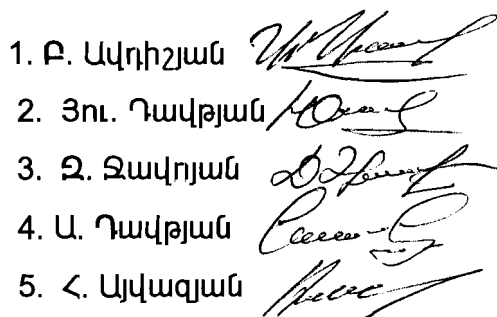 1. Բ. Ավդիշյան
2. Յու. Դավթյան
3. Ջ. Ջավոյան
4. Ա. Դավթյան
5. Հ. Այվազյան